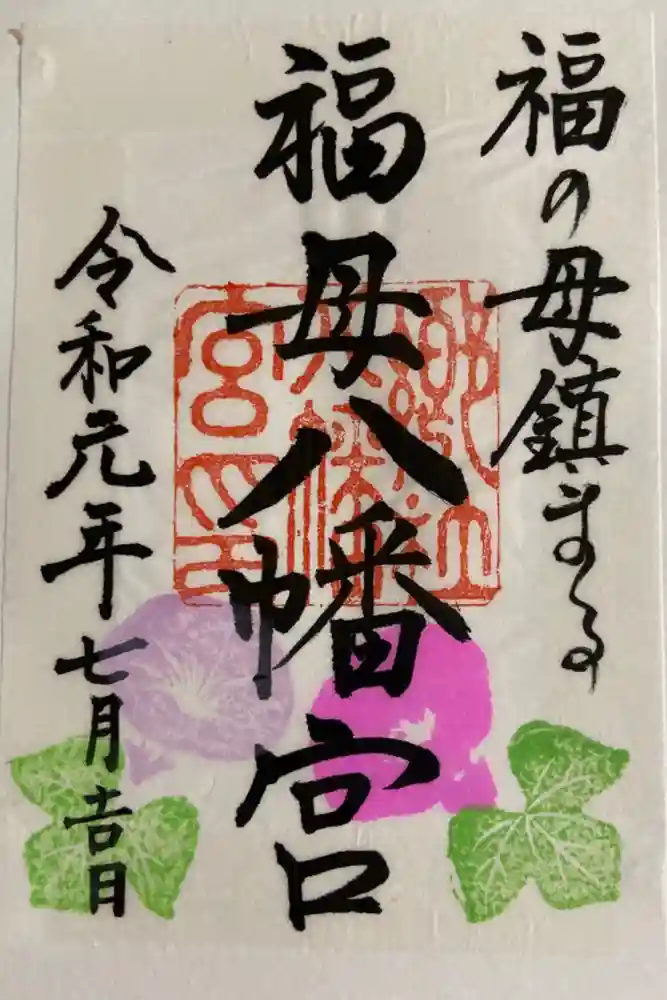 福の母鎮まる
福母八幡宮
令和元年七月吉日